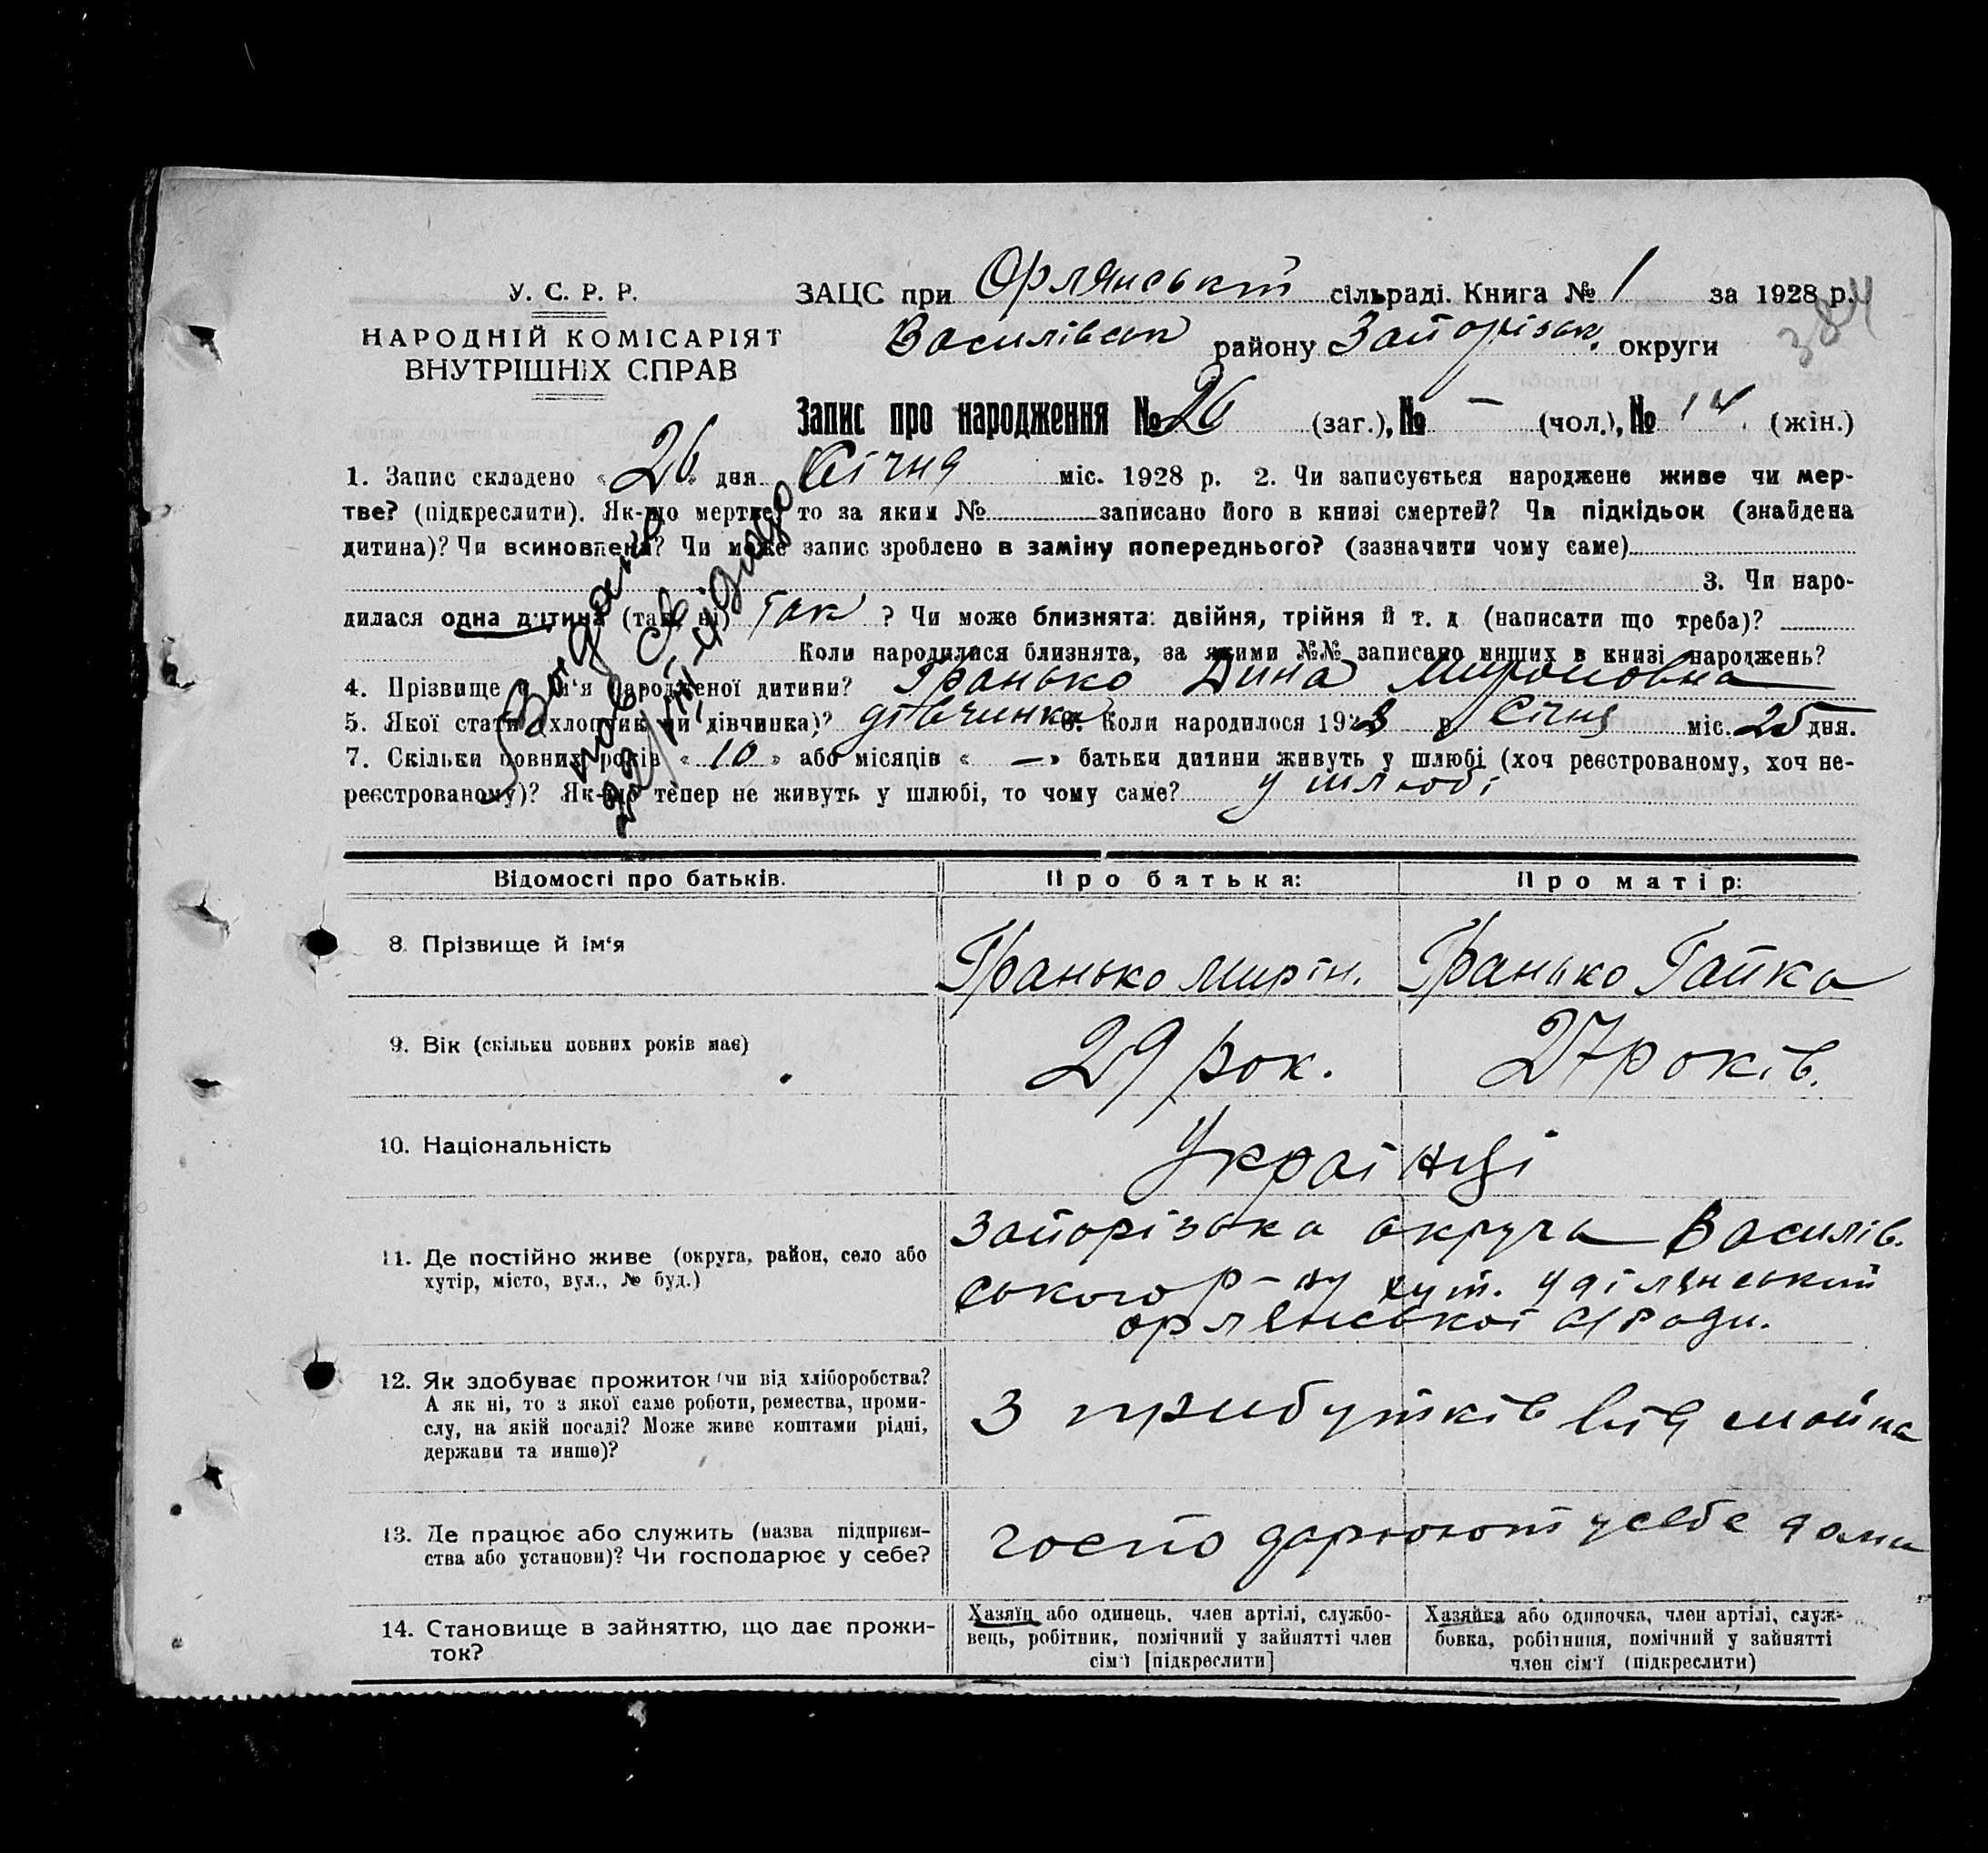 У. С. Р. Р.
НАРОДНІЙ КОМІСАРІЯТ
ВНУТРІШНІХ СПРАВ
ЗАЦС при Орлянській сільраді. Книга № 1 за 1928 р.
384
Василівськ району Запорізьк. округи
Запис про народження № 26 (заг.), № – (чол.), № 14 (жін.)
1. Запис складено « 26 » дня Січня міс. 1928 р. 2. Чи записується народжене живе чи мер-
тве? (підкреслити). Як-що мертве, то за яким № записано його в книзі смертей? Чи підкідьок (знайдена
дитина)? Чи всиновлена? Чи може запис зроблено в заміну попереднього? (зазначити чому саме)
3. Чи наро-
дилася одна дитина (так, ні) так ? Чи може близнята: двійня, трійня й т. д (написати що треба)?
Коли народилися близнята, за якими №№ записано инших в книзі народжень?
4. Прізвище й ім'я народженої дитини? Гранько Дина Мироновна
5. Якої стати (хлопчик чи дівчинка)? дівчинка 6. Коли народилося 1928 р Січня міс. 25 дня.
7. Скільки повних років « 10 » або місяців « — » батьки дитини живуть у шлюбі (хоч реєстрованому, хоч не-
реєстрованому)? Як-що тепер не живуть у шлюбі, то чому саме? у шлюбі
Відомості про батьків. Про батька: Про матір:
8. Прізвище й ім'я Гранько Мирін. Гранько Гапка
9. Вік (скільки повних років має) 29 рок. 27 років.
10. Національність Українці
11. Де постійно живе (округа, район, село або
хутір, місто, вул., № буд.)
Запорізька округа Василів.
ського р-ну хут. Уділянський
орлянської с/ради.
12. Як здобуває прожиток (чи від хліборобства?
А як ні, то з якої саме роботи, ремества, проми-
слу, на якій посаді? Може живе коштами рідні,
держави та инше)?
З прибутків від майна
13. Де працює або служить (назва підприєм-
ства або установи)? Чи господарює у себе?
господарюють у себе дома
14. Становище в зайняттю, що дає прожи-
ток?
Хазяїн або одинець, член артілі, службо-
вець, робітник, помічний у зайнятті член
сім'ї [підкреслити]
Хазяйка або одиночка, член артілі, служ-
бовка, робітниця, помічний у зайнятті
член сім'ї (підкреслити)